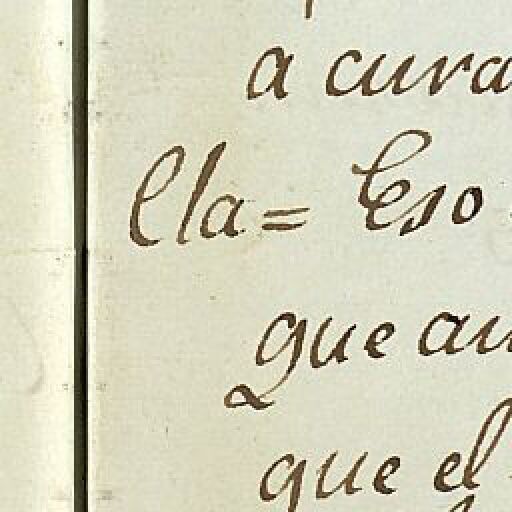 a cura
Ella= Eso
que au
que el